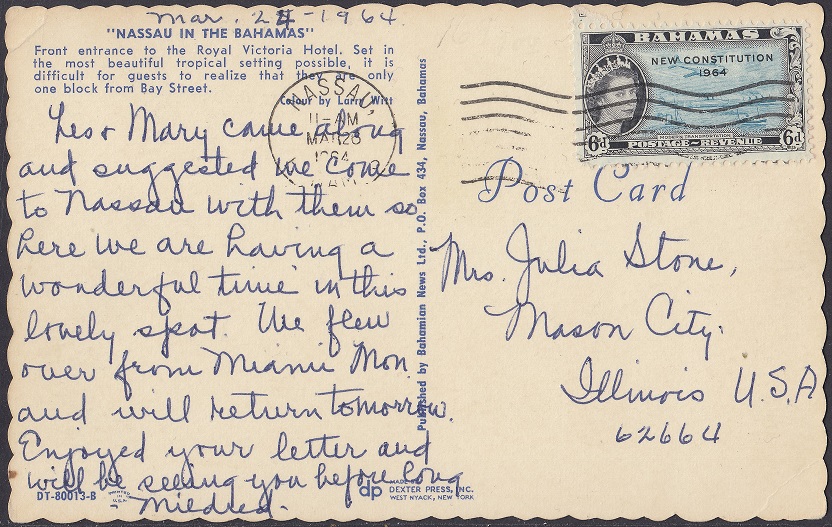 Mar. 24-1964
"NASSAU IN THE BAHAMAS"
Front entrance to the Royal Victoria Hotel. Set in
the most beautiful tropical setting possible, it is
difficult for guests to realize that they are only
one block from Bay Street.
Colour by Larry Witt
Les & Mary came along
and suggested we come
to Nassau with them so
here we are having a
wonderful time in this
lovely spot. We flew
over from Miami Mon.
and will return tomorrow.
Enjoyed your letter and
will be seeing you before long
- Mildred.
DT-80013-B
PRINTED IN U.S.A.
Published by Bahamian News Ltd., P.O. Box 434, Nassau, Bahamas
MADE BY
dp DEXTER PRESS, INC.
WEST NYACK, NEW YORK
NASSAU,
11-AM
MAR 26
1964
BAHAMAS
NEW CONSTITUTION
1964
MODERN TRANSPORTATION
6d POSTAGE~REVENUE 6d
Post Card
Mrs. Julia Stone,
Mason City.
Illinois U.S.A
62664